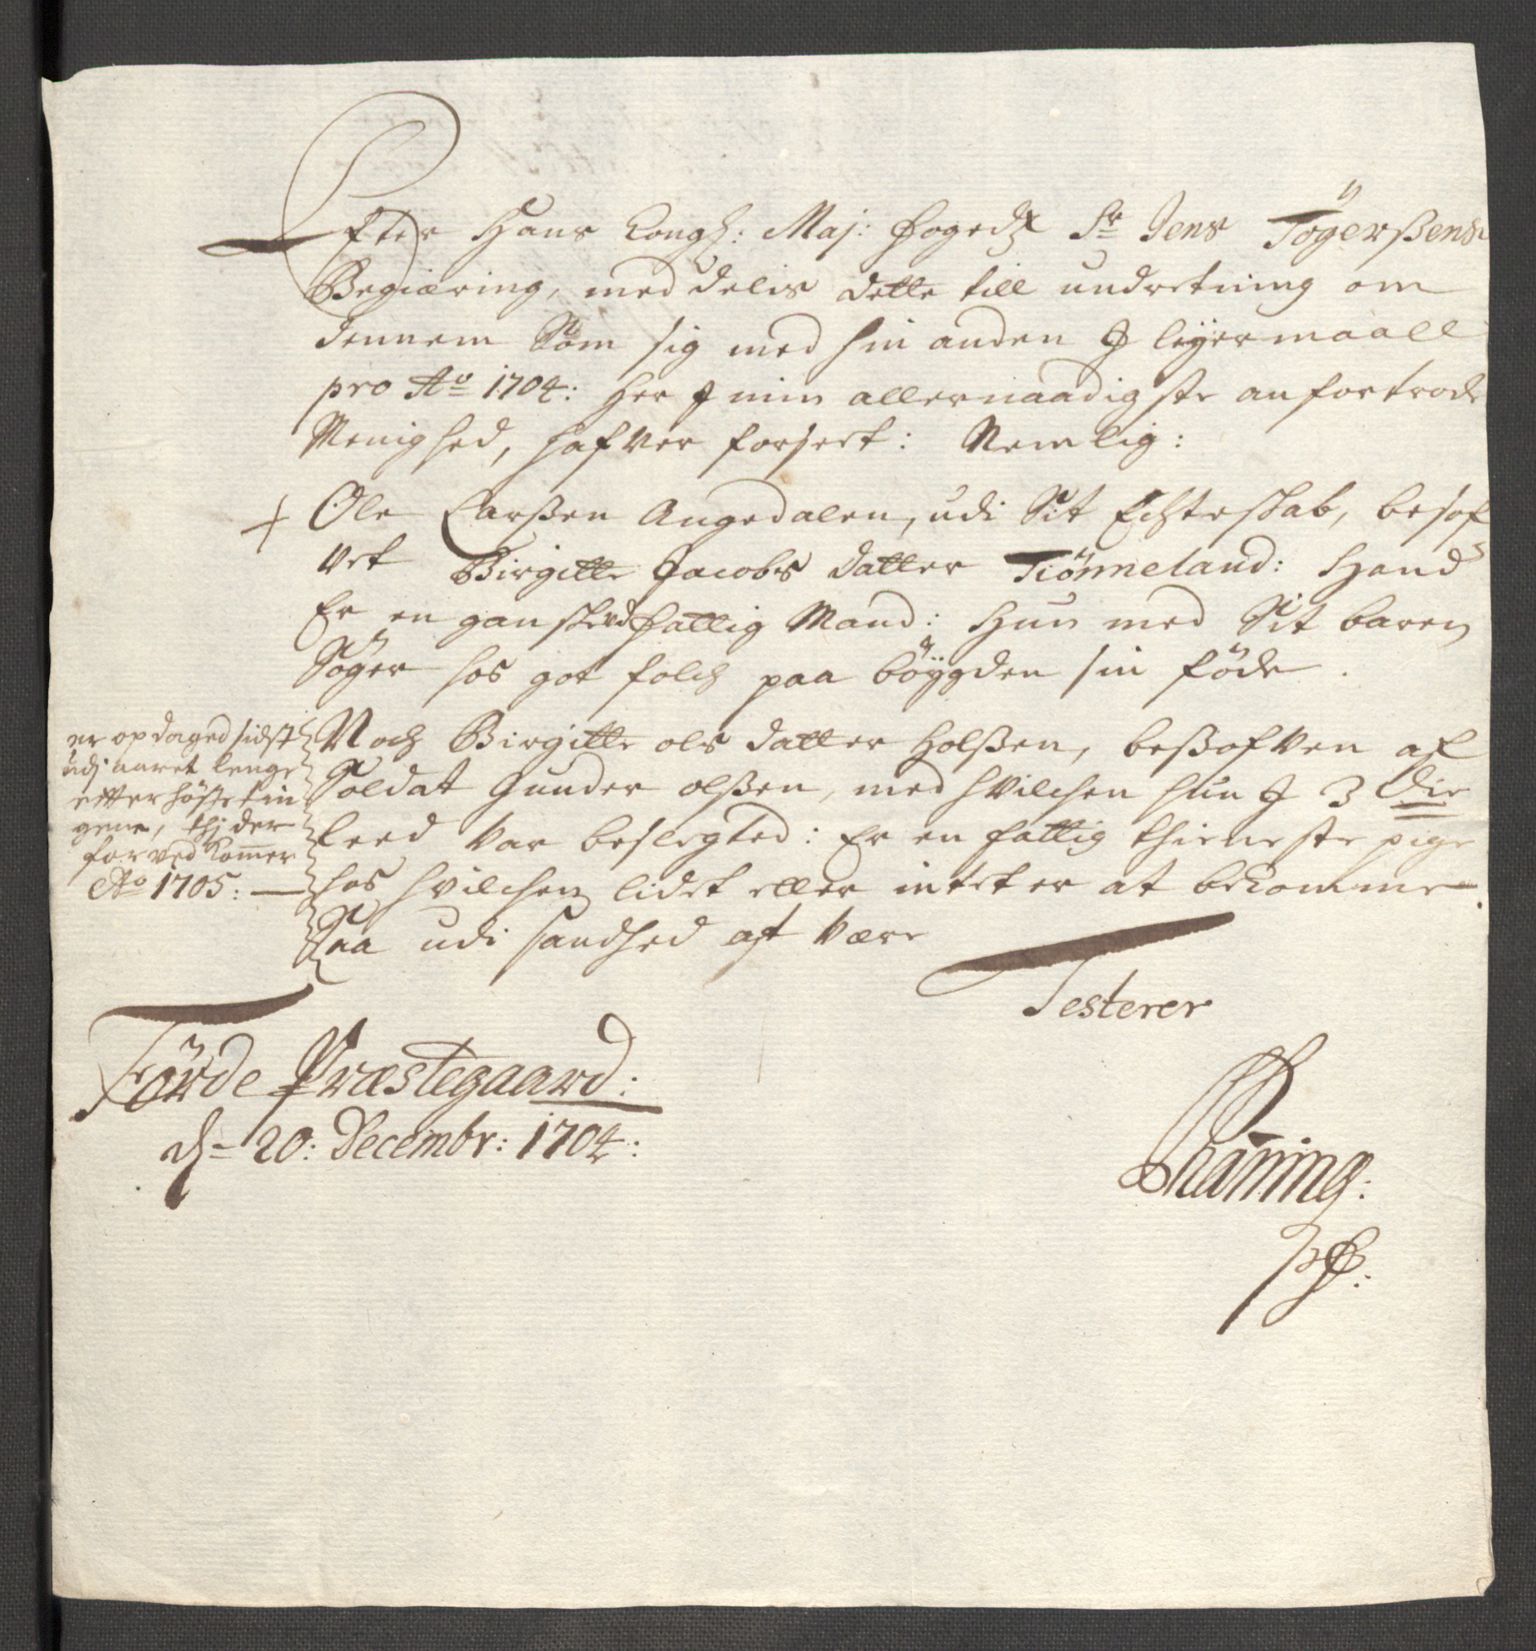 Efter Hans Kongl: Maj: Fogedz Sr Jens Tögerßens
Begiæring, meddelis dette till undretning om
dennem Som sig med hin anden I leyermaall
pro Ao 1704: her I min allernaadigste anfortrode
Menighed, hafver forseet: Nemlig:
+ Ole Larßen Angedalen, udi Sit Echteskab, besof
vet Birgitte Jacobs datter Tiönneland: Hand
Er en gandske fattig Mand: Hun med Sit baren
Söger hos got folch paa böygden sin föde.
Noch Birgitte ols datter Holßen, beßofven af
Soldat Gunder olßen, med hvilchen hun I 3 die
Leed var beslegted: Er en fattig thieneste pige
hos hvilchen lidet eller intet er at bekomme.
Saa udi sandhed at være
er opdaged sidst
udj aaret lenge
efter höste tin
gene, thj der
for ved kommer
Ao 1705: —
Testerer
Förde Præstegaard:
d: 20: Decembr: 1704: